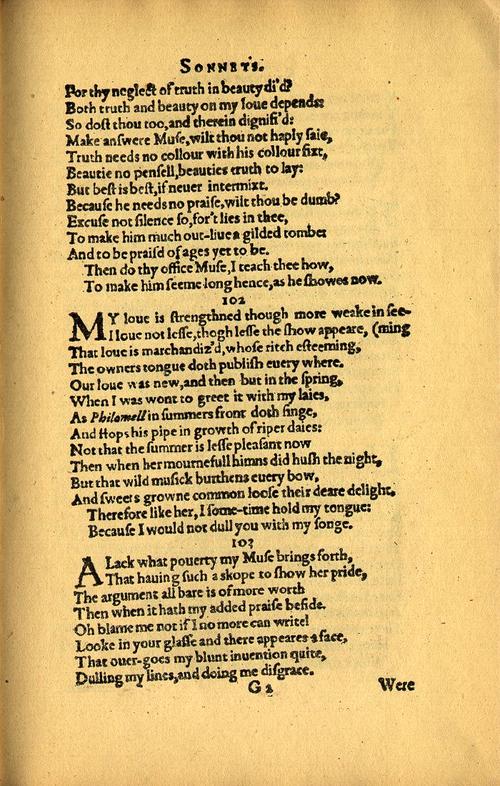 SONNETS.
For thy neglect of truth in beauty di'd?
Both truth and beauty on my loue depends:
So dost thou too, and therein dignifi'd:
Make answere Muse, wilt thou not haply saie,
Truth needs no collour with his collour fixt,
Beautie no pensell, beauties truth to lay:
But best is best, if neuer intermixt.
Because he needs no praise, wilt thou be dumb?
Excuse not silence so, for't lies in thee,
To make him much out-liue a gilded tombe:
And to be prais'd of ages yet to be.
Then do thy office Muse, I teach thee how,
To make him seeme long hence, as he showes now.
102
MY loue is strengthned though more weake in see-
I loue not lesse, thogh lesse the show appeare, (ming
That loue is marchandiz'd, whose ritch esteeming,
The owners tongue doth publish euery where.
Our loue was new, and then but in the spring,
When I was wont to greet it with my laies,
As Philomell in summers front doth singe,
And stops his pipe in growth of riper daies:
Not that the summer is lesse pleasant now
Then when her mournefull himns did hush the night,
But that wild musick burthens euery bow,
And sweets growne common loose their deare delight.
Therefore like her, I some-time hold my tongue:
Because I would not dull you with my songe.
103
ALack what pouerty my Muse brings forth,
That hauing such a skope to show her pride,
The argument all bare is of more worth
Then when it hath my added praise beside.
Oh blame me not if I no more can write!
Looke in your glasse and there appeares a face,
That ouer-goes my blunt inuention quite,
Dulling my lines, and doing me disgrace.
G 2 Were